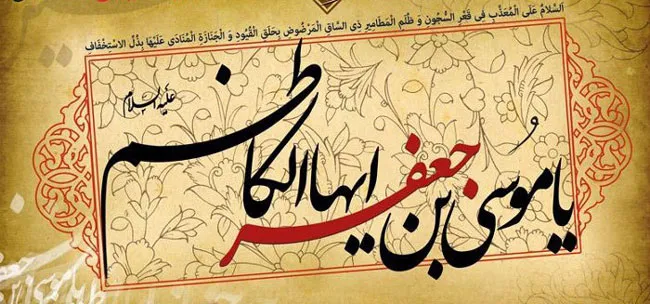 السَّلامُ عَلَی الْمُعَذَّبِ فِی قَعْرِ السُّجُونِ وَ ظُلَمِ الْمَطَامِیرِ ذِی السَّاقِ الْمَرْضُوضِ بِحَلَقِ الْقُیُودِ وَ الْجَنَازَةِ الْمُنَادَی عَلَیْهَا بِذُلِّ الاسْتِخْفَافِ
علیه السلام
یا مُوسی بن جعفر ایها الکاظم